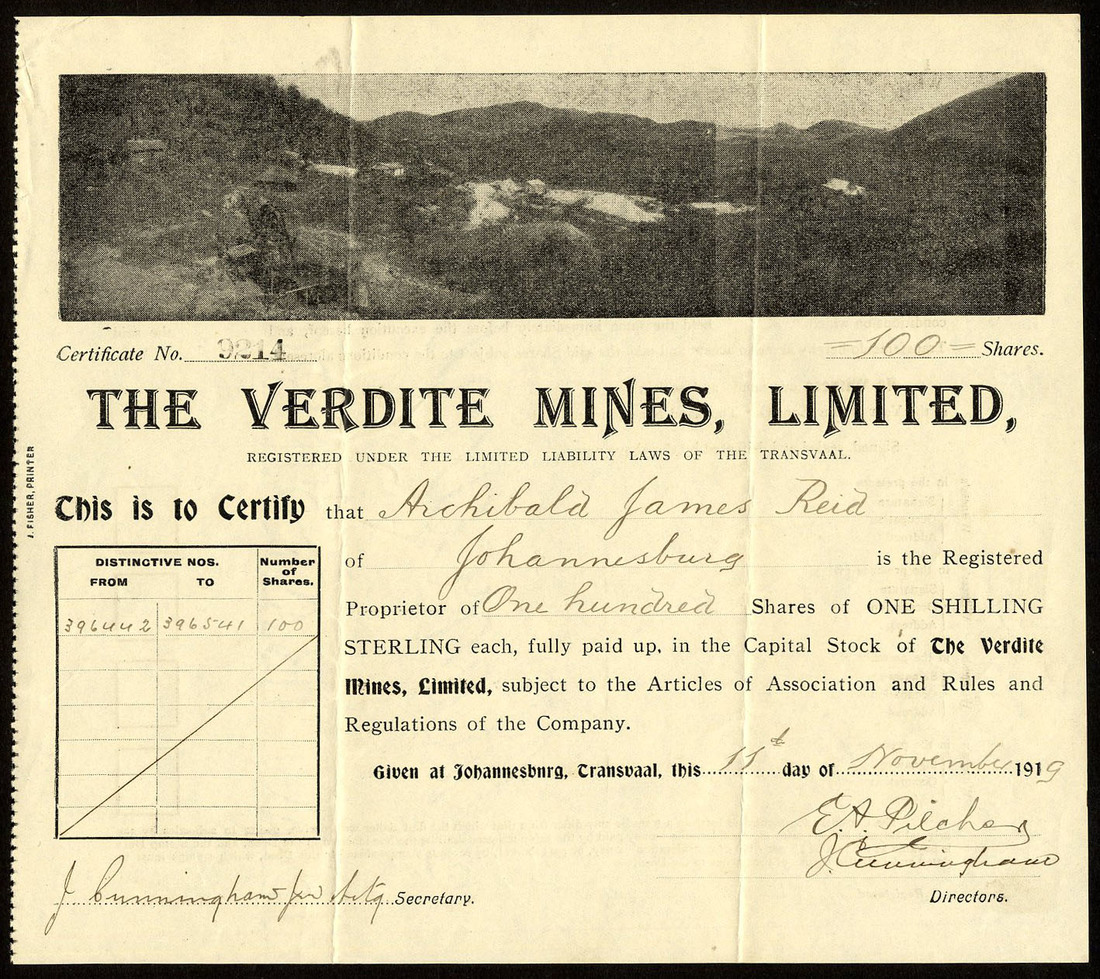 Certificate No. 9214 =100= Shares.
THE VERDITE MINES, LIMITED,
REGISTERED UNDER THE LIMITED LIABILITY LAWS OF THE TRANSVAAL.
J. FISHER, PRINTER
This is to Certify that Archibald James Reid
of Johannesburg is the Registered
Proprietor of One hundred Shares of ONE SHILLING
STERLING each, fully paid up, in the Capital Stock of The Verdite
Mines, Limited, subject to the Articles of Association and Rules and
Regulations of the Company.
DISTINCTIVE NOS. Number of Shares.
FROM TO
396442 396541 100
Given at Johannesburg, Transvaal, this 11th day of November 1919
E. A. Pilcher
J Cunningham
J Cunningham Secretary.
Directors.